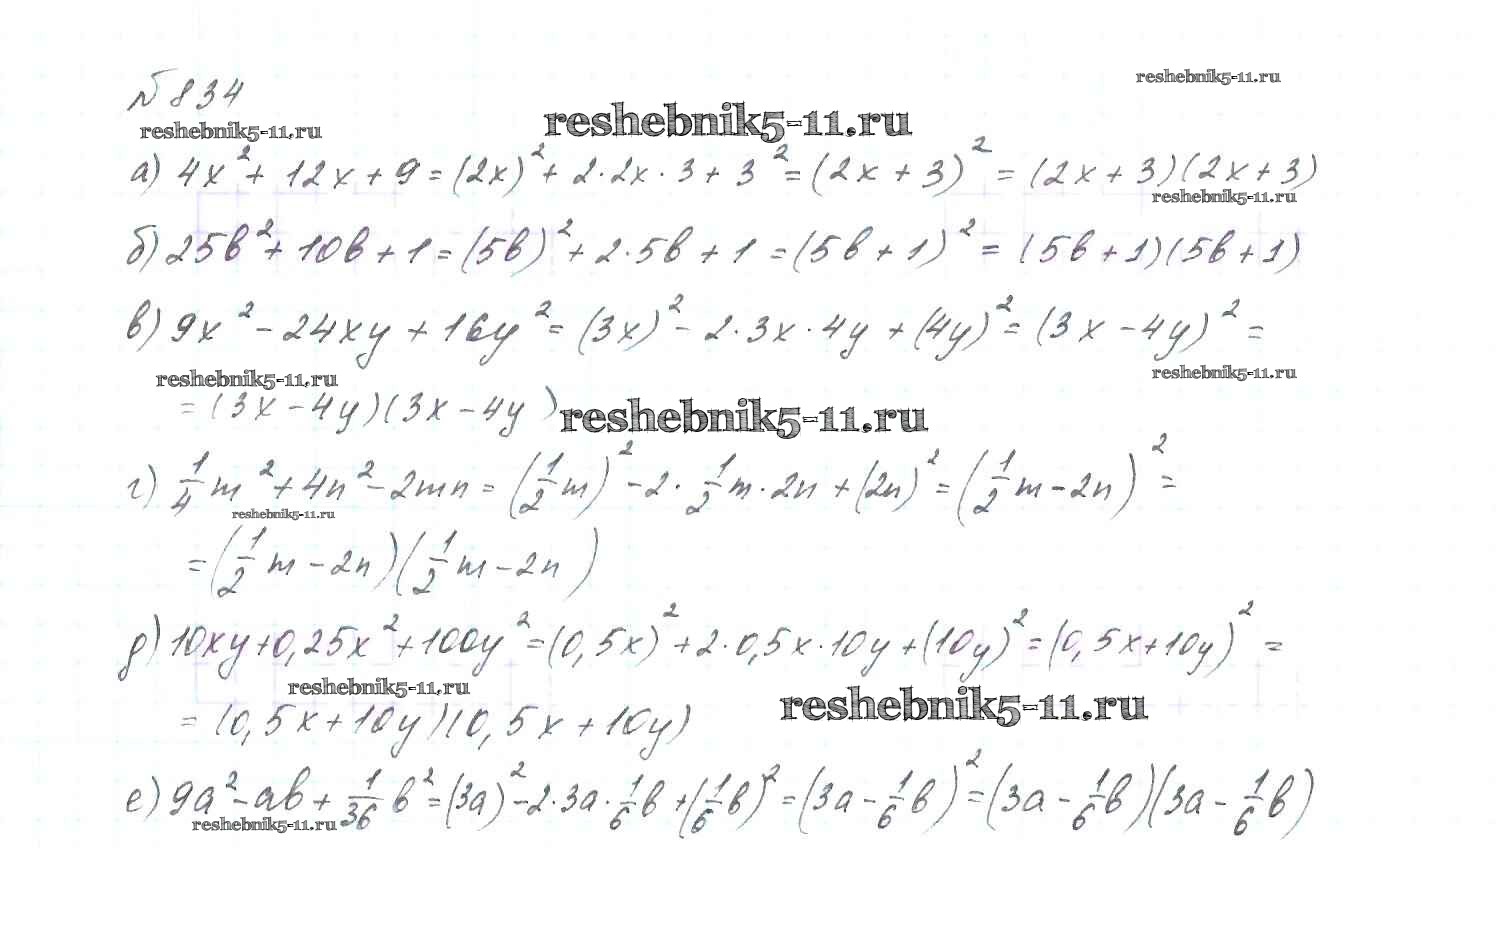 № 834
reshebnik5-11.ru
reshebnik5-11.ru
reshebnik5-11.ru
а) 4x² + 12x + 9 = (2x)² + 2·2x·3 + 3² = (2x + 3)² = (2x + 3)(2x + 3)
reshebnik5-11.ru
б) 25b² + 10b + 1 = (5b)² + 2·5b + 1 = (5b + 1)² = (5b + 1)(5b + 1)
в) 9x² - 24xy + 16y² = (3x)² - 2·3x·4y + (4y)² = (3x - 4y)² =
reshebnik5-11.ru
reshebnik5-11.ru
= (3x - 4y)(3x - 4y)
reshebnik5-11.ru
г) 1/4 m² + 4n² - 2mn = (1/2 m)² - 2·1/2 m·2n + (2n)² = (1/2 m - 2n)² =
reshebnik5-11.ru
= (1/2 m - 2n)(1/2 m - 2n)
д) 10xy + 0,25x² + 100y² = (0,5x)² + 2·0,5x·10y + (10y)² = (0,5x + 10y)² =
reshebnik5-11.ru
reshebnik5-11.ru
= (0,5x + 10y)(0,5x + 10y)
е) 9a² - ab + 1/36 b² = (3a)² - 2·3a·1/6 b + (1/6 b)² = (3a - 1/6 b)² = (3a - 1/6 b)(3a - 1/6 b)
reshebnik5-11.ru